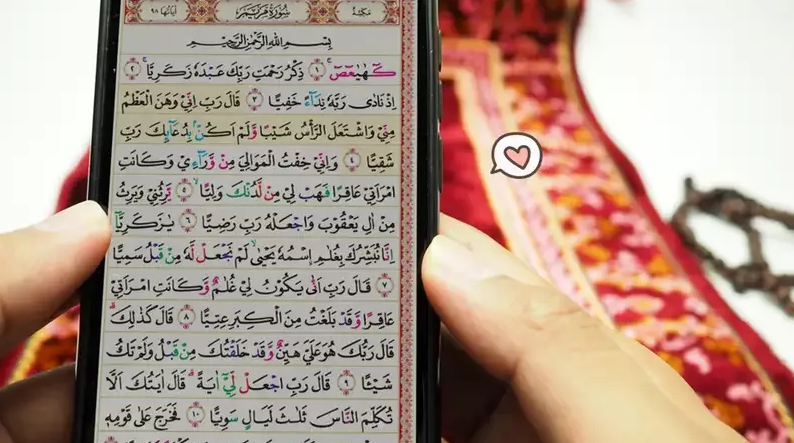 مكية سورة مريم آياتها ٩٨
بِسْمِ اللهِ الرَّحْمٰنِ الرَّحِيْمِ
كۤهٰيٰعۤصۤ ۚ ١ ذِكْرُ رَحْمَتِ رَبِّكَ عَبْدَهٗ زَكَرِيَّا ۚ ٢
اِذْ نَادٰى رَبَّهٗ نِدَاۤءً خَفِيًّا ٣ قَالَ رَبِّ اِنِّيْ وَهَنَ الْعَظْمُ
مِنِّيْ وَاشْتَعَلَ الرَّأْسُ شَيْبًا وَّلَمْ اَكُنْۢ بِدُعَاۤىِٕكَ رَبِّ
شَقِيًّا ٤ وَاِنِّيْ خِفْتُ الْمَوَالِيَ مِنْ وَّرَاۤءِيْ وَكَانَتِ
امْرَاَتِيْ عَاقِرًا فَهَبْ لِيْ مِنْ لَّدُنْكَ وَلِيًّا ۙ ٥ يَّرِثُنِيْ وَيَرِثُ
مِنْ اٰلِ يَعْقُوْبَ وَاجْعَلْهُ رَبِّ رَضِيًّا ٦ يٰزَكَرِيَّاۤ
اِنَّا نُبَشِّرُكَ بِغُلٰمِ ِۨاسْمُهٗ يَحْيٰىۙ لَمْ نَجْعَلْ لَّهٗ مِنْ قَبْلُ سَمِيًّا
٧ قَالَ رَبِّ اَنّٰى يَكُوْنُ لِيْ غُلٰمٌ وَّكَانَتِ امْرَاَتِيْ
عَاقِرًا وَّقَدْ بَلَغْتُ مِنَ الْكِبَرِ عِتِيًّا ٨ قَالَ كَذٰلِكَۚ
قَالَ رَبُّكَ هُوَ عَلَيَّ هَيِّنٌ وَّقَدْ خَلَقْتُكَ مِنْ قَبْلُ وَلَمْ تَكُ
شَيْـًٔا ٩ قَالَ رَبِّ اجْعَلْ لِّيْۤ اٰيَةً ۗ قَالَ اٰيَتُكَ اَلَّا
تُكَلِّمَ النَّاسَ ثَلٰثَ لَيَالٍ سَوِيًّا ١٠ فَخَرَجَ عَلٰى قَوْمِهٖ